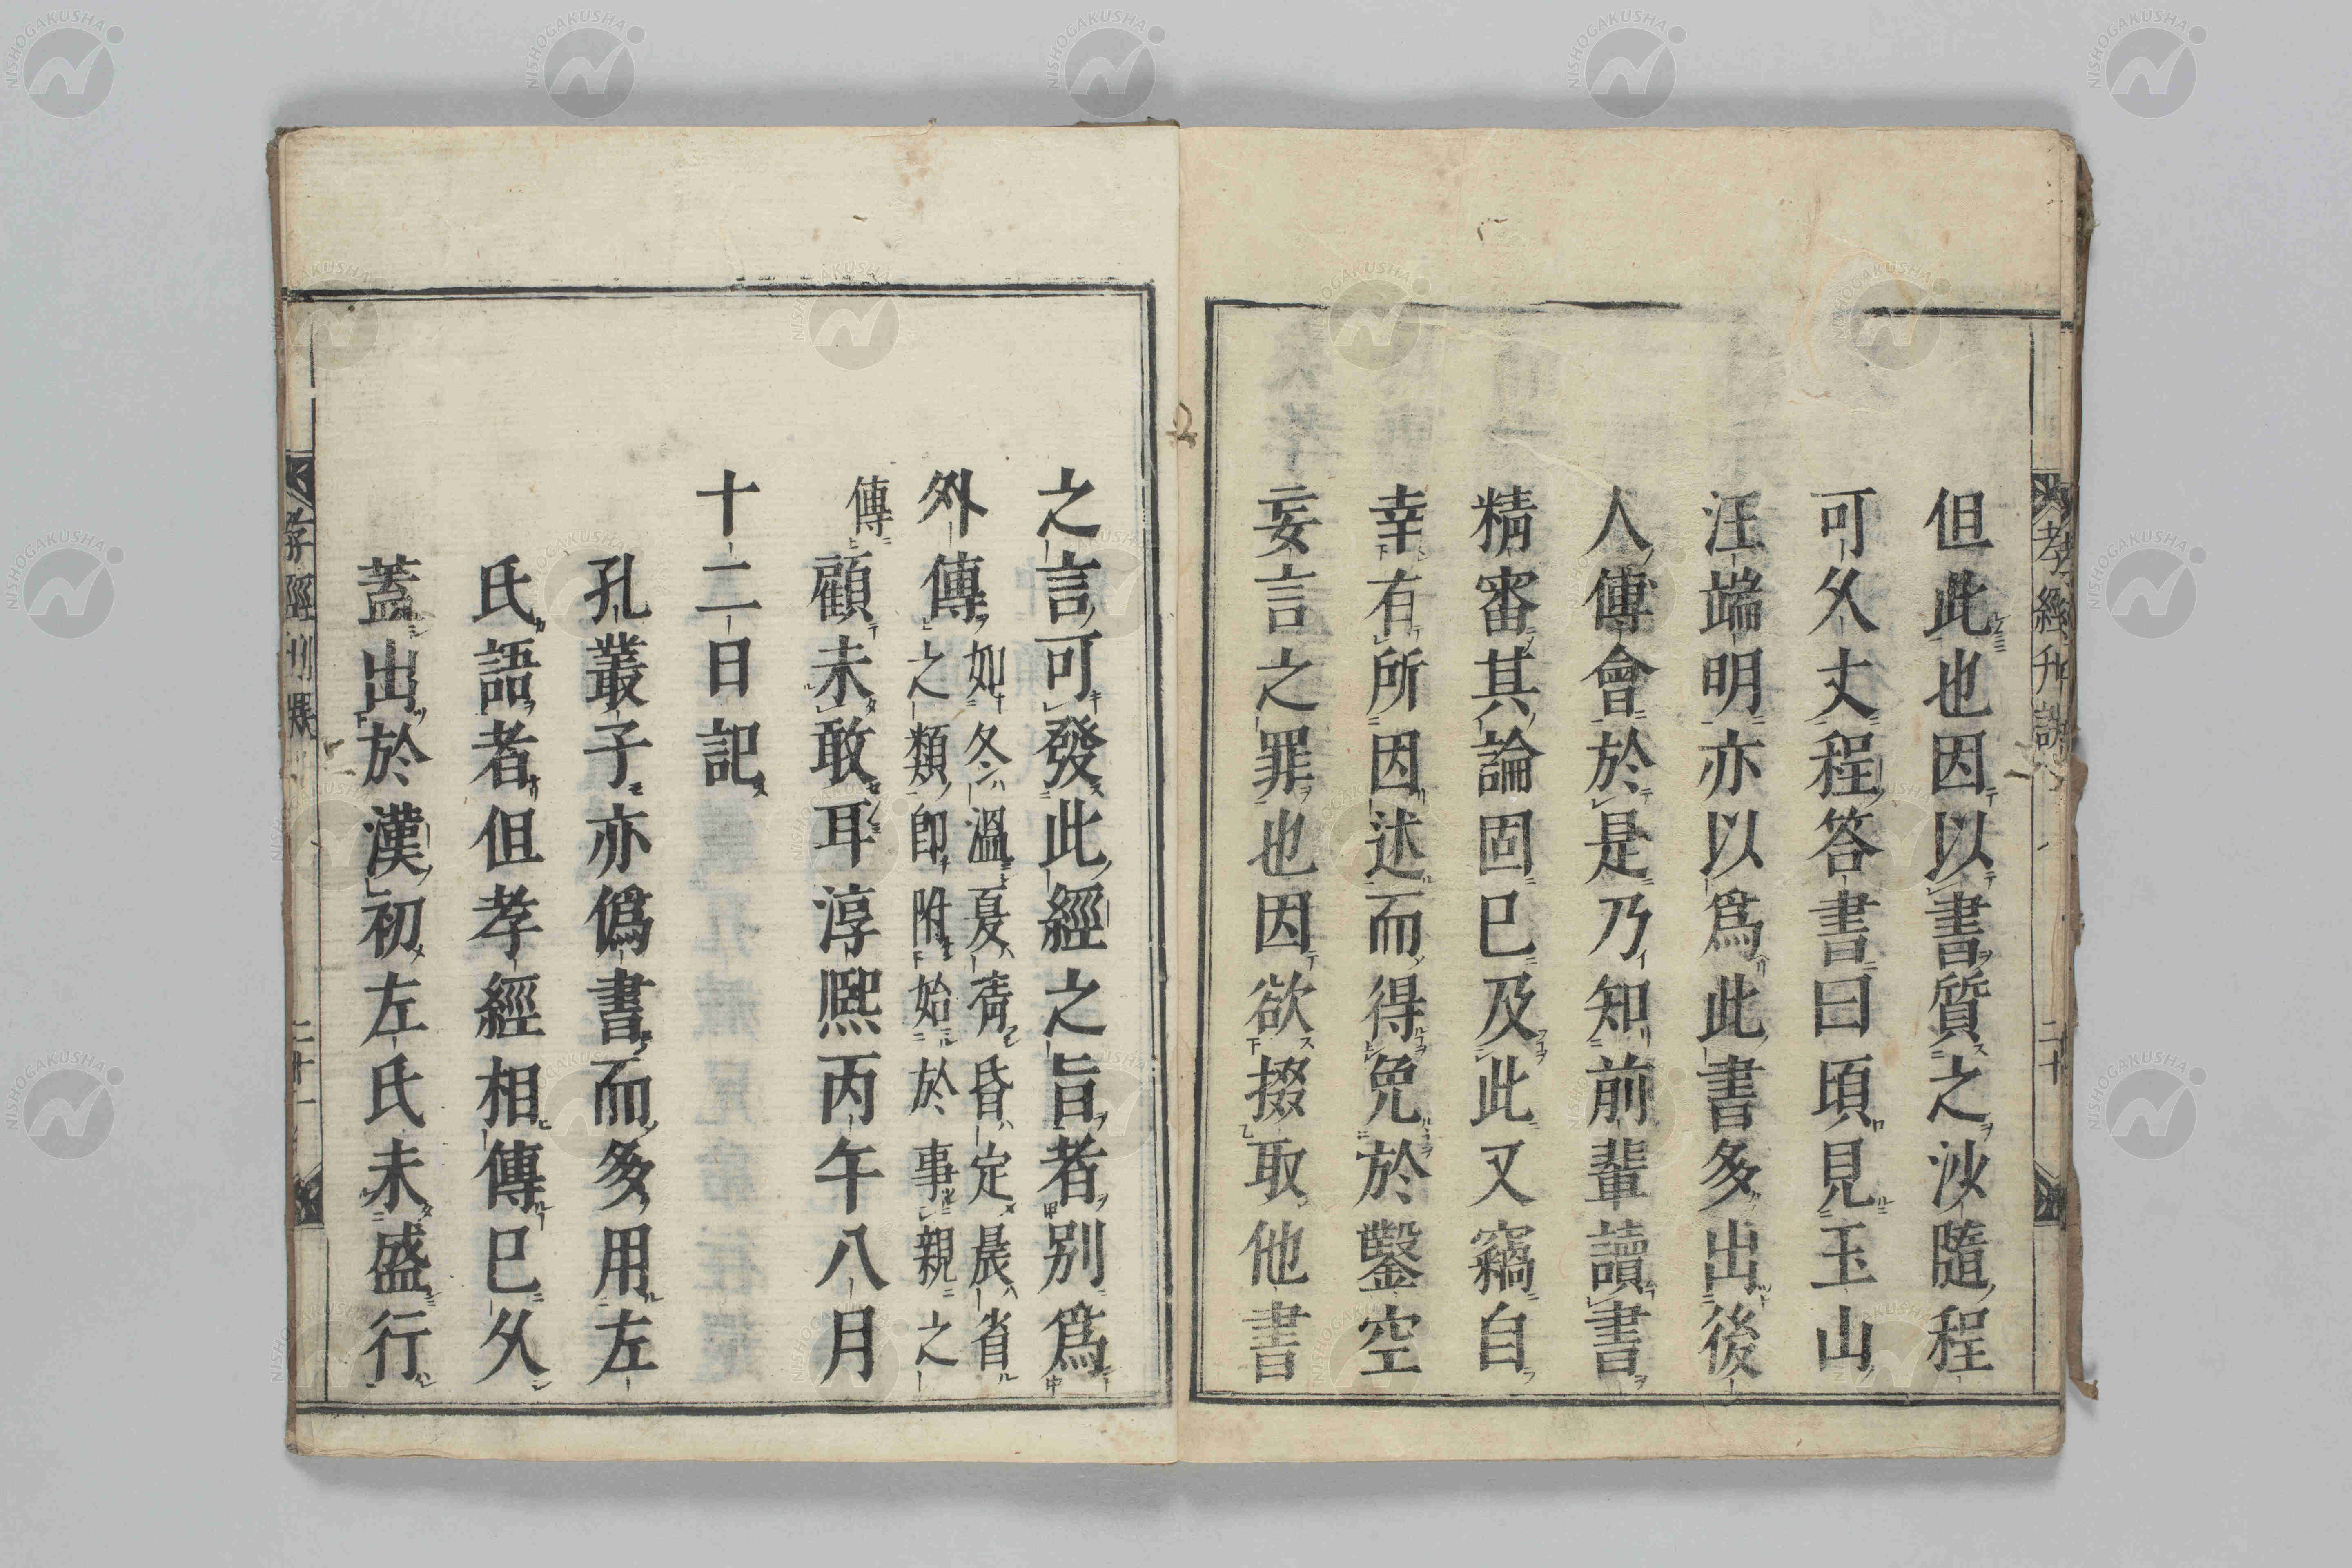 但此也因以書質之沙隨程
可久丈程答書曰頃見玉山
汪端明亦以爲此書多出後
人傅會於是乃知前輩讀書
精審其論固已及此又竊自
幸有所因述而得免於鑿空
妄言之罪也因欲掇取他書
之言可發此經之旨者別爲
外傳
如冬溫夏凊昏定晨省
之類即附始於事親之
傳
顧未敢耳淳熙丙午八月
十二日記
孔叢子亦僞書而多用左
氏語者但孝經相傳已久
蓋出於漢初左氏未盛行
孝經刊誤
二十
孝經刊誤
二十一
NISHOGAKUSHA